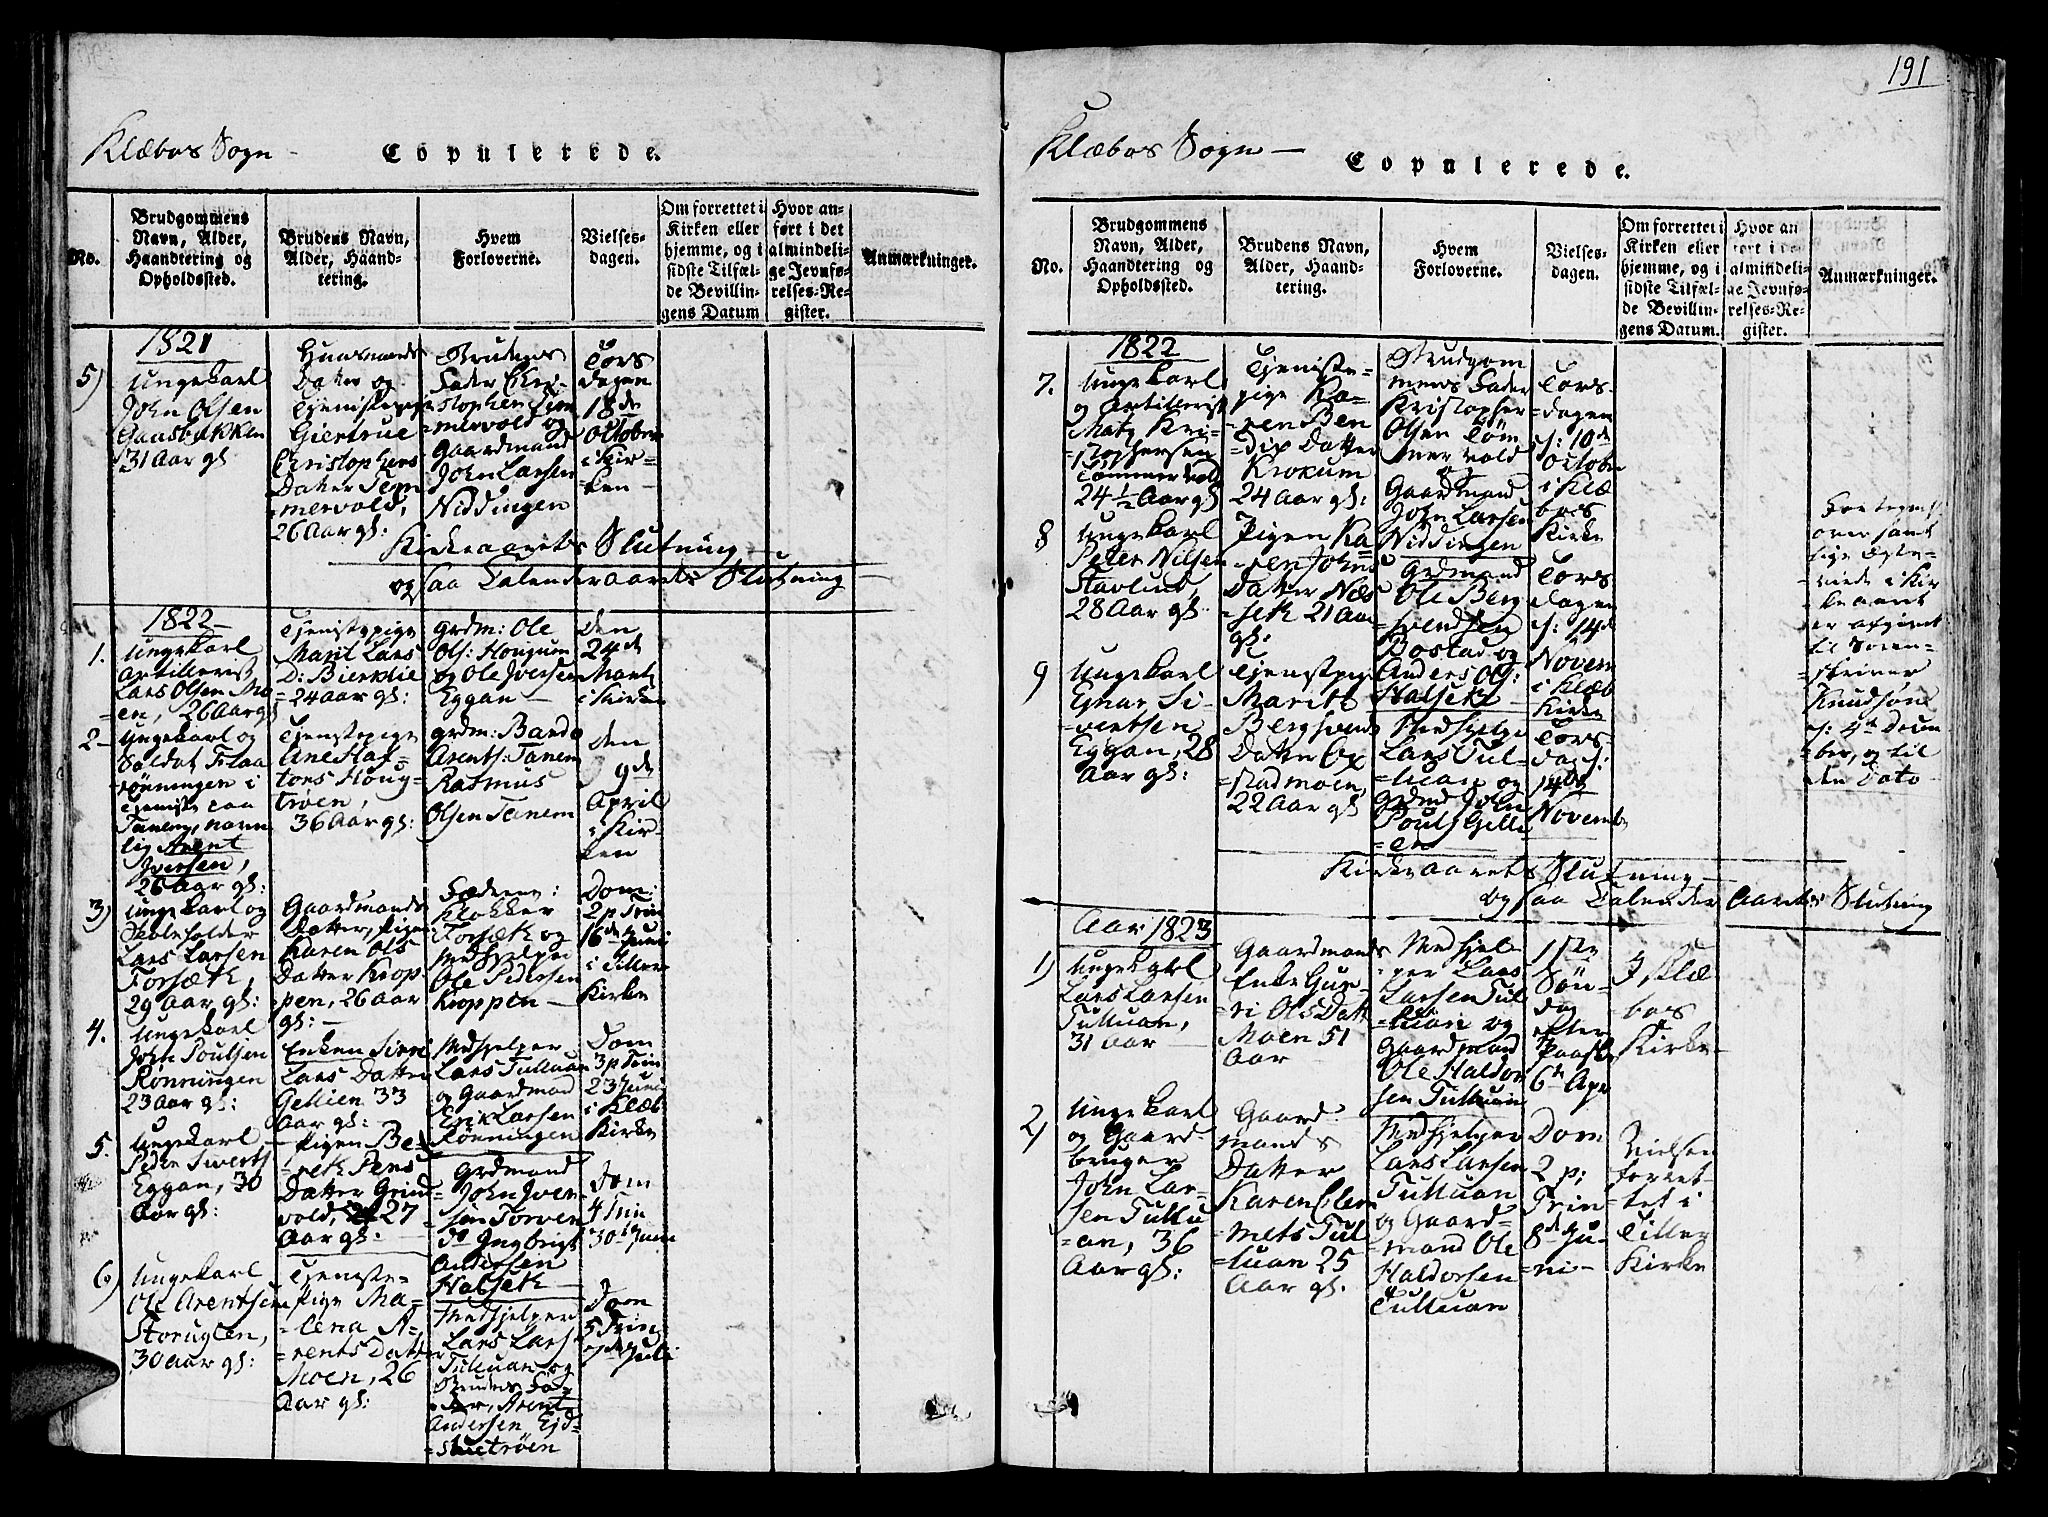 Klæbos Sogn –
Copulerede.
No.
Brudgommens
Navn, Alder,
Haandtering og
Opholdssted.
Brudens Navn,
Alder, Haand-
tering.
Hvem
Forloverne.
Vielses-
dagen.
Om forrettet i
Kirken eller
hjemme, og i
sidste Tilfæl-
de Bevillin-
gens Datum
Hvor an-
ført i det
almindeli-
ge Jevnfø-
relses-Re-
gister.
Anmærkninger.
1821
5)
Ungekarl
John Olsen
Gaasbakken
31 Aar gl
Huusmands
Datter og
Tjenistepige
Giertrue
Christophers
Datter Tem
=mervold,
26 Aar gl:
Brudens
Fader Chri-
stopher Tem
=mervold og
Gaardmand
John Larsen
Niddingen
Tors
dagen
18de
October
i Kir=
ken –
Kirkeaarets Slutning –
og saa Calenderaarets Slutning –
1822 –
1.
Ungekarl
Artillerist
Lars Olsen Mo
=en, 26 Aar gl
Tjenistepige
Marit Lars
D: Bierklie
=24 aar gl:
Grdm: Ole
Ols: Hougum
og Ole Iversen
Eggan –
den
24de
Martz
i Kirken
2 –
Ungekarl og
Soldat Flaa
rönningen i
Tjeniste paa
Tanem, navn
lig Arent
Iversen,
26 Aar gl:
Tjenistepige
Ane Haf=
tors Houg=
tröen,
36 Aar gl:
grdm: Bardo
Arents: Tanem
Rasmus
Olsen Tanem
den
9de
April
i Kir-
ken
3)
Ungekarl og
Skoleholder
Lars Larsen
Forsæth,
29 Aar gl:
Gaardmands
Datter, Pigen
Karen Ols
Datter Krop-
pen, 26 aar
gl: –
Klokker
Forsæth og
Medhjelper
Ole Pedersen
Kroppen –
Dom:
2 p Trin
16de Juni
i Tiller
Kirke
4.
Ungekarl
John Poulsen
Rönningen
23 Aar gl:
Enken Sirri
Lars Datter
Gellien 33
Aar gl:
Medhjelper
Lars Tulluan
og Gaardmad
Erik Larsen
Rönningen
Dom
3 p Trin
23 Juni
i Klæb
Kirke
5.
Ungekarl
Peder Siverts
Eggan, 30
Aar gl:
Pigen Be-
reth Jens
Datter Grind
vold, 27
Aar gl: –
Grdmand
John Iver=
sen Torven
do Ingbrigt
Andersen
Halseth –
Dom
4 Trin
30te Juni
6)
Ungekarl
Ole Arentsen
Storuglen,
30 Aar gl:
Tjeniste=
Pige Ma=
=lena A=
=rents Datter
Moen, 26
Aar gl:
Medhjelper
Lars Lars:
Tulluan og
Brudens Fa=
=der, Arent
Andersen Ejd=
=stutröen
Dom
5 Trin
7de Juli
191
Klæbos Sogn –
Copulerede.
No.
Brudgommens
Navn, Alder,
Haandtering og
Opholdssted.
Brudens Navn,
Alder, Haand-
tering.
Hvem
Forloverne.
Vielses-
dagen.
Om forrettet i
Kirken eller
hjemme, og i
sidste Tilfæl-
de Bevillin-
gens Datum.
Hvor an
ført i de
almindeli-
ge Jevnfø-
relses-Re-
gister.
Anmærkninger.
1822
7.
Ungekarl
og Artillerist
Matz Kri-
=stophersen
Tömmervold
24½ Aar gl
Tjeniste-
pige Ka-
=ren Ben
dix Datter
Krokum
24 Aar gl:
Brudgom
mens Fader
Kristopher
Olsen Töm
mervold
og
Gaardmand
John Larsen
Niddingen
Tors-
=dagen
d: 10de
Octobr
i Klæ
bos
Kirke
8
Ungekarl
Peter Nilsen
Stavlund,
28 Aar gl:
Pigen Ka=
=ren Johns
Datter Næs
=seth 21 Aar
gl:
Grdmand
Ole Berg
=svendsen
Bostad og
Anders Ols:
Halseth –
Tors
=dagen
d: 14d
Novem
i Klæb
Kirke
9
Ungekarl
Einar Si-
=vertsen
Eggan, 28
Aar gl:
Tjenstpige
Marith
Bergsvends
Datter Ox
=stadmoen,
22 Aar gl
Medhjelper
Lars Tul-
=luan og
Grdmd John
Pouls Gelli
=en –
Tors-
dag d:
14de
Novemb
over samt
lige Copule-
til Soren-
skriver
Knudson
d: 4de Decem
=ber, og til
den Dato –
Kirkeaarets Slutning –
og saa Calender Aarets Slutning
Aar 1823
1)
Ungekarl
Lars Larsen
Tulluan,
31 Aar –
Gaardmands
Enke Gun-
=ri Ols Datt
Moen 51
Aar
Medhjel-
=per Lars
Larsen Tul
=luan og
Gaardmand
Ole Haldor
sen Tulluan
1ste
Sön-
dag
efter
Paaske
6te Apr
I Klæ
bos
Kirke –
2)
Ungekarl
og Gaard-
bruger
John Lar-
sen Tullu
=an, 36
Aar gl:
Gaard
mands
Datter
Karen Elle
mets Tul
=luan 25
Aar gl.
Medhjelper
Lars Larsen
Tulluan
og Gaard-
mand Ole
Haldorsen
Tulluan
Dom
2 p;
Trin
8de Ju-
=ni –
Vielsen
forret-
tet i
Tiller
Kirke